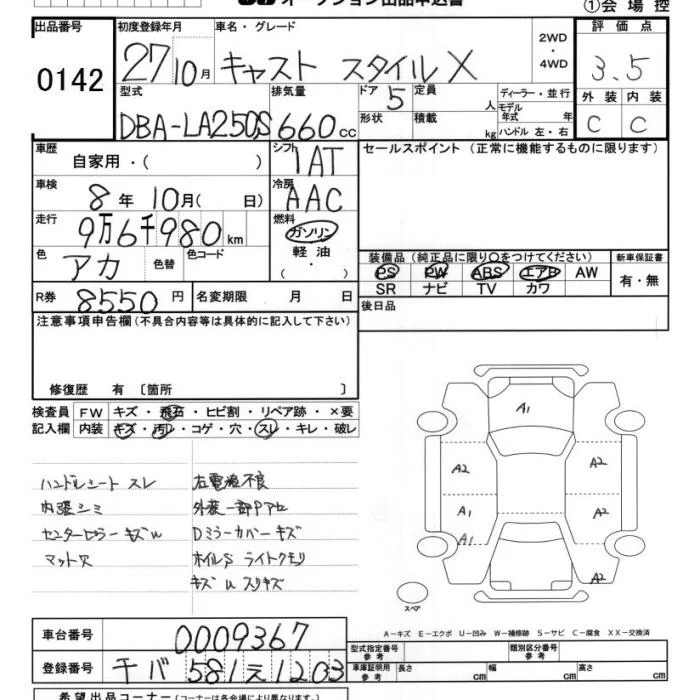 オークション出品申込書
①会場控
出品番号 0142
初度登録年月 27 10月
車名・グレード キャスト スタイルX
2WD・4WD
評価点 3.5
外装 C 内装 C
型式 DBA-LA250S
排気量 660cc
ドア 5
形状
定員 人
積載 kg
ディーラー・並行
モデル年式 年式
ハンドル 左・右
車歴 自家用・( )
シフト 1AT
セールスポイント (正常に機能するものに限ります)
車検 8年 10月( 日)
冷房 AAC
走行 9万6千980 km
燃料 ガソリン
軽油・( )
色 アカ 色替 色コード
R券 8550円 名変期限 月 日
装備品 (純正品に限り○をつけてください) 新車保証書
PS PW ABS エアB AW 有・無
SR ナビ TV カワ
後日品
注意事項申告欄 (不具合内容等は具体的に記入して下さい)
修復歴 有 〔箇所 〕
検査員 FW キズ・飛石・ヒビ割・リペア跡・×要
記入欄 内装 キズ・汚レ・コゲ・穴・スレ・キレ・破レ
ハンドルシート スレ
内張シミ
センターピラー キズW
マット穴
外装一部Pアセ
Dミラーカバー キズ
ホイルS ライトクモリ
A1
A2 A2
A1 A2
A1 A2
スペア
A-キズ E-エクボ U-凹み W-補修跡 S-サビ C-腐食 XX-交換済
車台番号 0009367
登録番号 千バ 581 え 1203
型式指定番号 参考 類別区分番号 参考
車庫証明用 参考 長さ cm 幅 cm 高さ cm
希望出品コーナー (コーナーは各会場により異なります。)